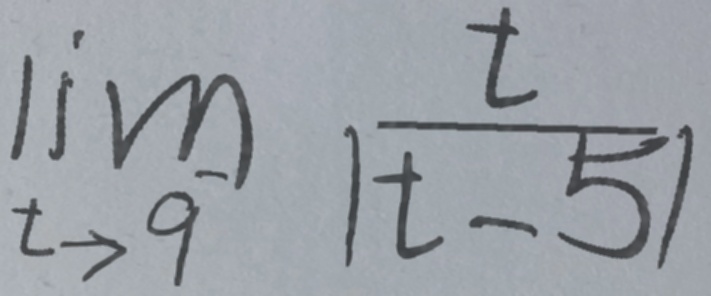 lim t→9⁻ t/|t-5|